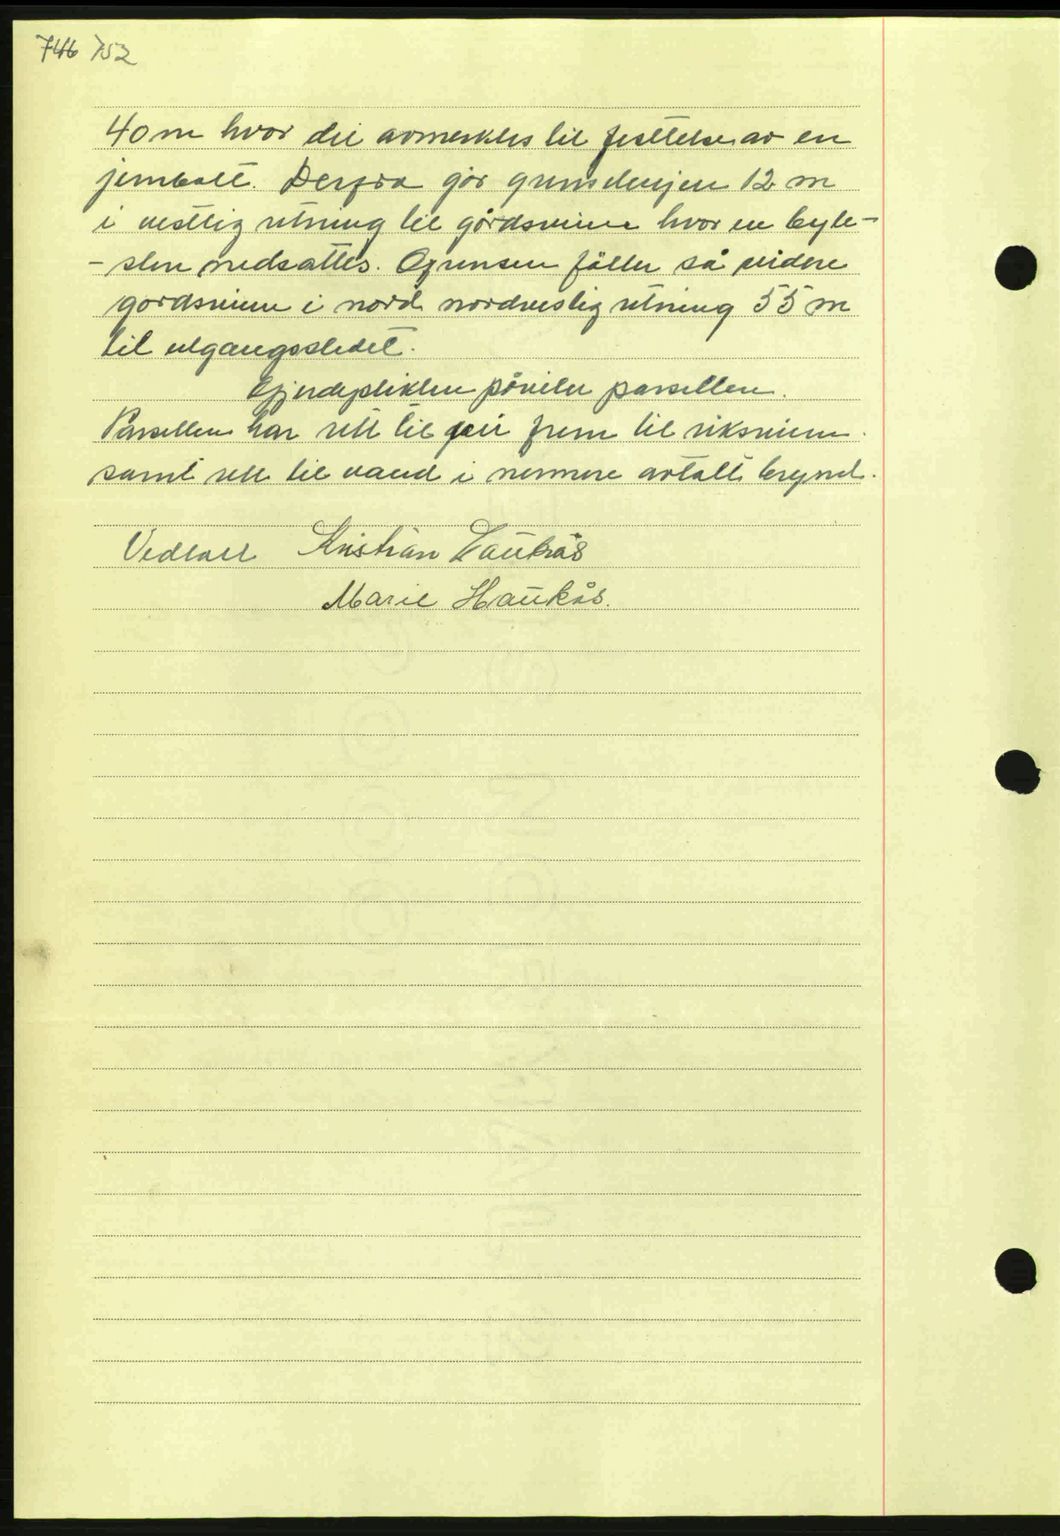 746 752
40 m hvor det avmerktes til festtelse av en
jernbolt. Derfra går grenselinjen 12 m
i vestlig retning til gårdsveien hvor en byte-
-sten nedsattes. Grensen følter så videre
gårdsveien i nord nordvestlig retning 55 m
til utgangsstedet.
Gjerdeplikten påviler parsellen.
Parsellen har rett til vei frem til riksveien
samt rett til vand i nermere avtalt brynd.
Vedtatt Kristian Haukås
Marie Haukås.